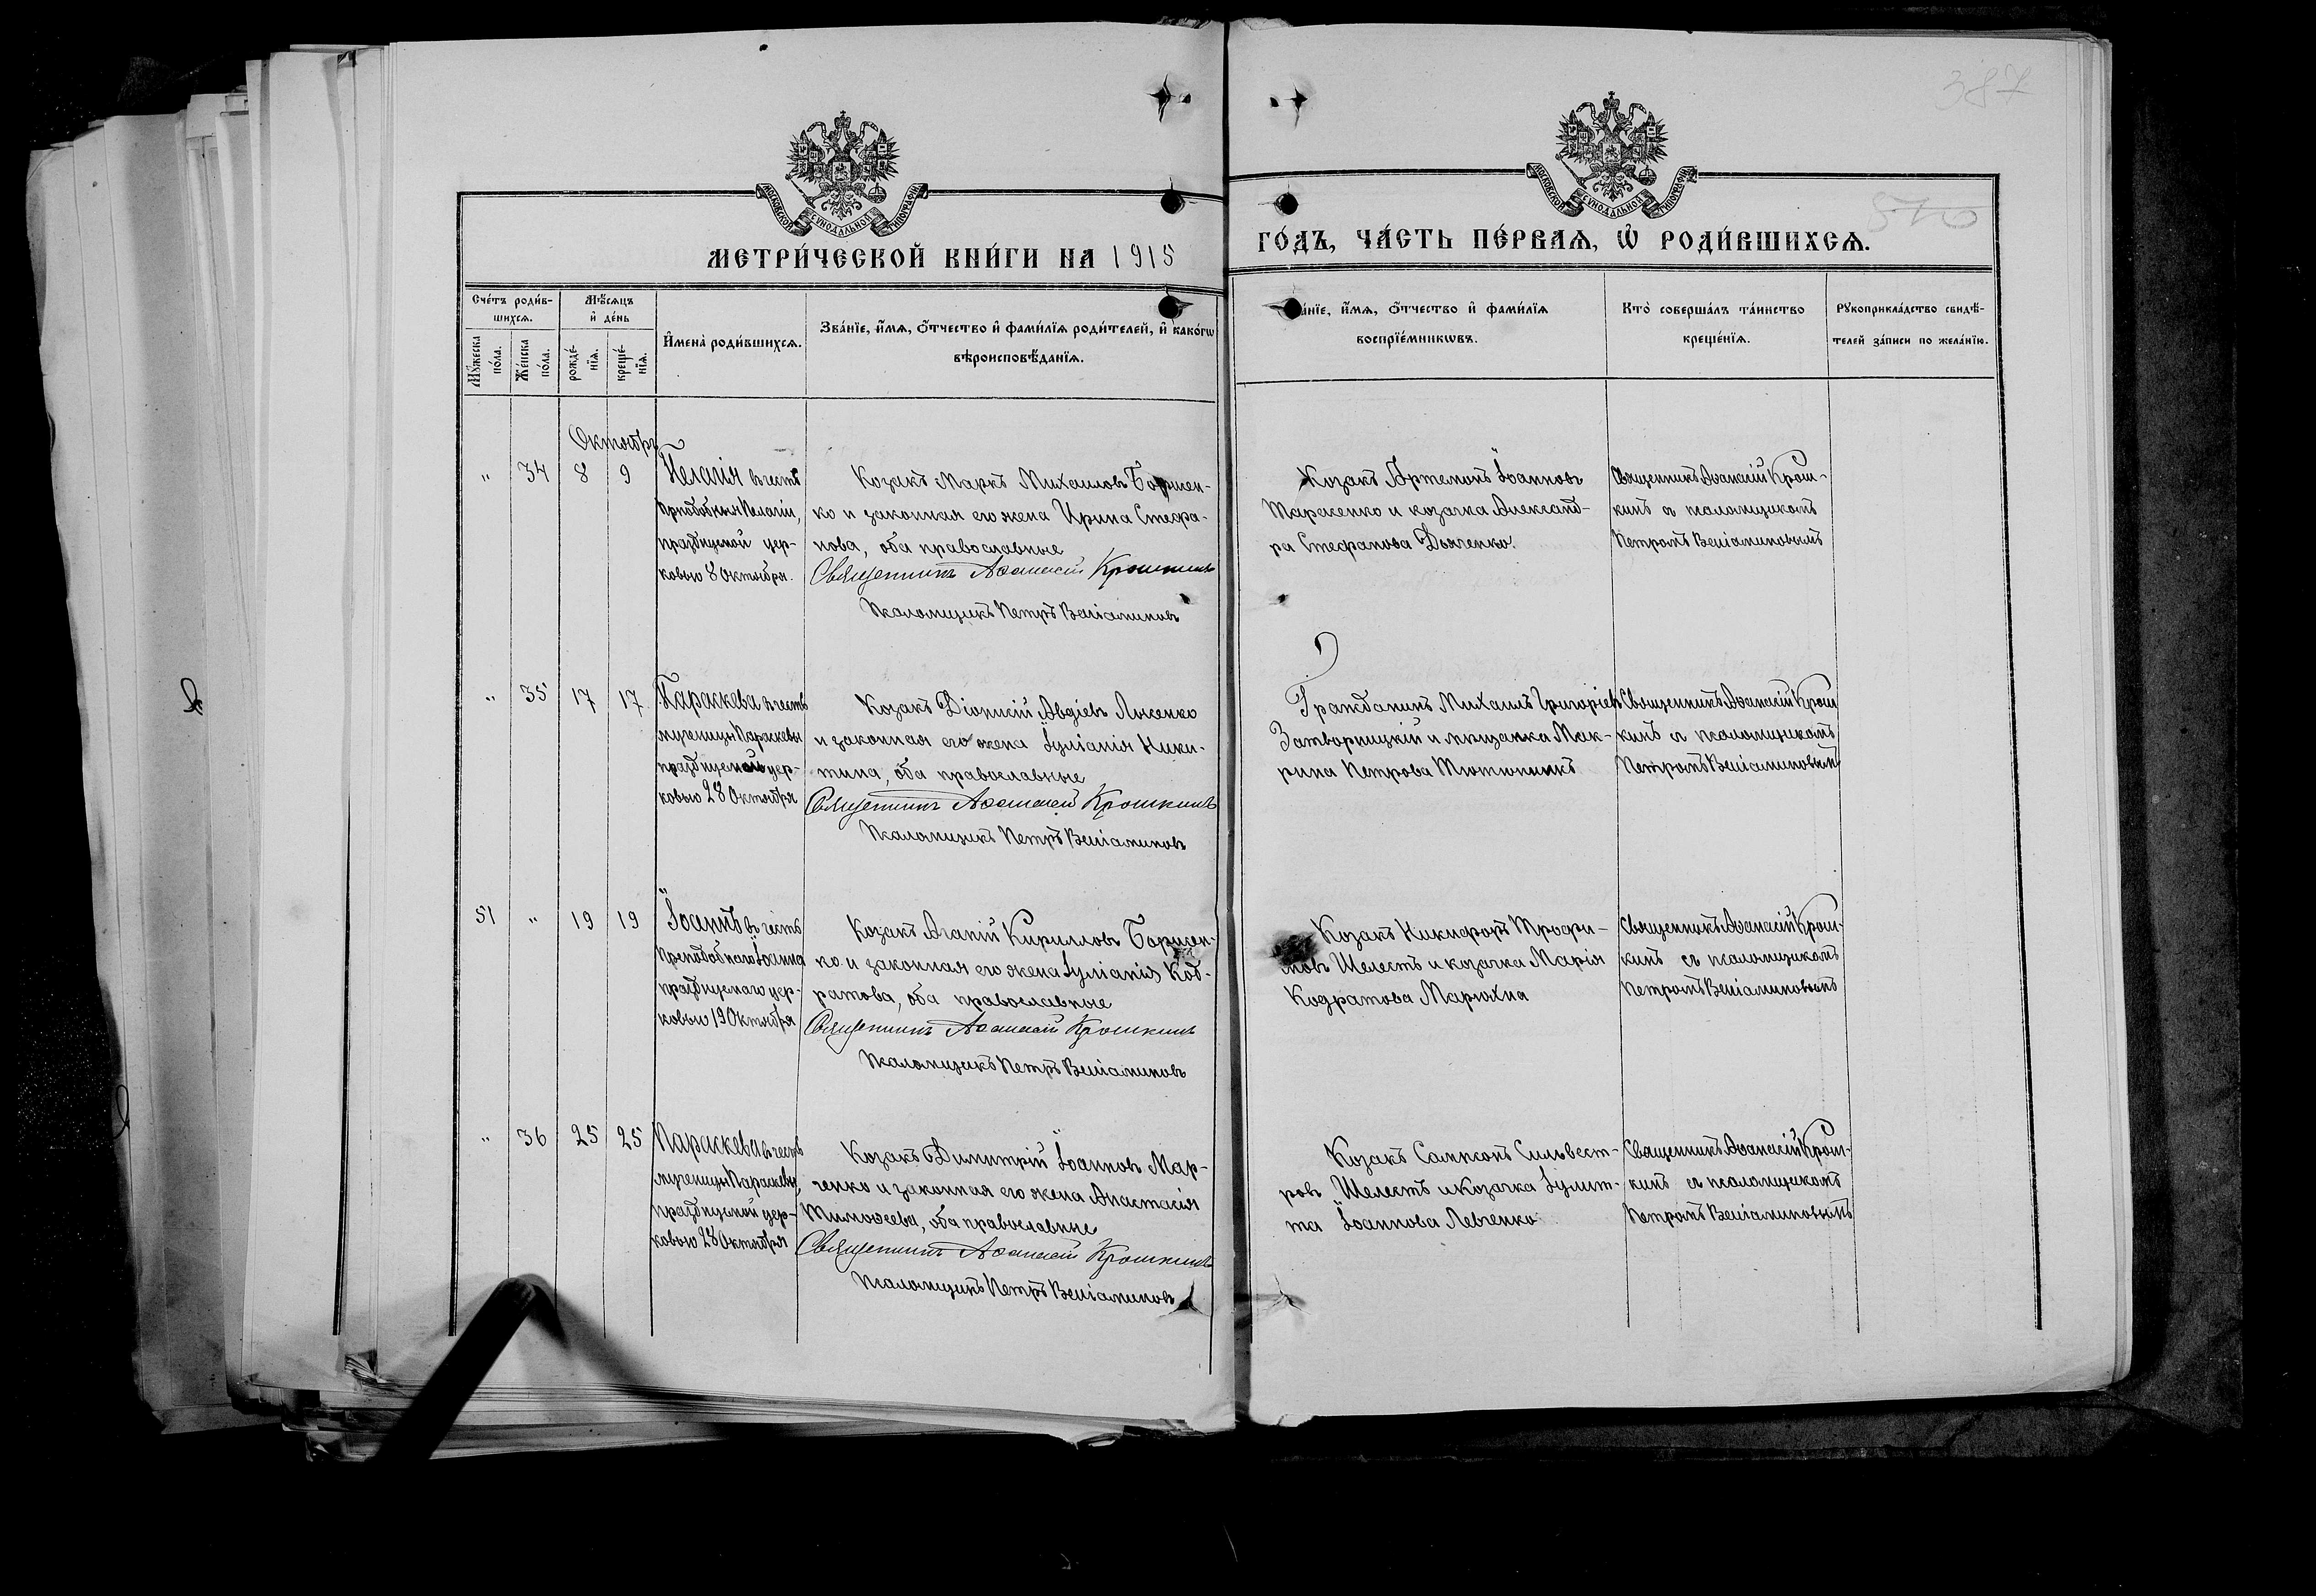 387
МОСКОВСКОЙ СУНОДАЛЬНОЙ ТИПОГРАФІИ
МОСКОВСКОЙ СУНОДАЛЬНОЙ ТИПОГРАФІИ
МЕТРИ́ЧЕСКОЙ КНИ́ГИ НА 1915
ГО́ДЪ, ЧА́СТЬ ПЕ́РВАѦ, Ѡ҆ РОДИ́ВШИХСѦ.
Сче́тъ роди́в-
шихсѧ.
Мѣ́сѧцъ
и҆ де́нь
Мꙋ́жеска
по́ла.
Же́нска
по́ла.
рожде́-
нїѧ.
креще́-
нїѧ.
И҆мена̀ роди́вшихсѧ.
Зва́нїе, и҆́мѧ, ѻ҆́тчество и҆ фами́лїѧ роди́телей, и҆ како́гѡ
вѣроисповѣ́данїѧ.
а́нїе, и҆́мѧ, ѻ҆́тчество и҆ фами́лїѧ
воспрїе́мникѡвъ.
Кто̀ соверша́лъ та́инство
креще́нїѧ.
Рꙋкоприкла́дство свидѣ́-
телей за́писи по жела́нїю.
Октябрь
" 34 8 9
Пелагія въ честь
Преподобныя Пелагіи,
празднуемой цер-
ковью 8 Октября.
Козакъ Маркъ Михаиловъ Борисен-
ко и законная его жена Ирина Стефа-
нова, оба православные
Священникъ Аѳанасій Крошкинъ
Псаломщикъ Петръ Веніаминовъ
Козакъ Артемонъ Іоанновъ
Тарасенко и козачка Александ-
ра Стефанова Дьяченко.
Священникъ Аѳанасій Крош-
кинъ съ псаломщикомъ
Петромъ Веніаминовымъ
" 35 17 17
Параскева въ честь
мученицы Параскевы
празднуемой цер-
ковью 28 Октября
Козакъ Діонисій Авдіевъ Лысенко
и законная его жена Іуліанія Ники-
тина, оба православные
Священникъ Аѳанасій Крошкинъ
Псаломщикъ Петръ Веніаминовъ
Гражданинъ Михаилъ Григоріевъ
Затворницкій и мѣщанка Мак-
рина Петрова Тютюнникъ
Священникъ Аѳанасій Крош
кинъ съ псаломщикомъ
Петромъ Веніаминовымъ
51 " 19 19
Іоаннъ въ честь
Преподобнаго Іоанна
празднуемаго цер-
ковью 19 Октября
Козакъ Агапій Кирилловъ Борисен-
ко и законная его жена Іуліанія Код-
ратова, оба православные
Священникъ Аѳанасій Крошкинъ
Псаломщикъ Петръ Веніаминовъ
Козакъ Никифоръ Трофи-
мовъ Шелестъ и козачка Марія
Кодратова Марюхна
Священникъ Аѳанасій Крош-
кинъ съ псаломщикомъ
Петромъ Веніаминовымъ
" 36 25 25
Параскева въ честь
мученицы Параскевы,
празднуемой цер-
ковью 28 Октября
Козакъ Димитрій Іоанновъ Мар-
ченко и законная его жена Анастасія
Тимоѳеева, оба православные
Священникъ Аѳанасій Крошкинъ
Псаломщикъ Петръ Веніаминовъ
Козакъ Сампсонъ Сильвест-
ровъ Шелестъ и Козачка Іулит-
та Іоаннова Левченко
Священникъ Аѳанасій Крош-
кинъ съ псаломщикомъ
Петромъ Веніаминовымъ